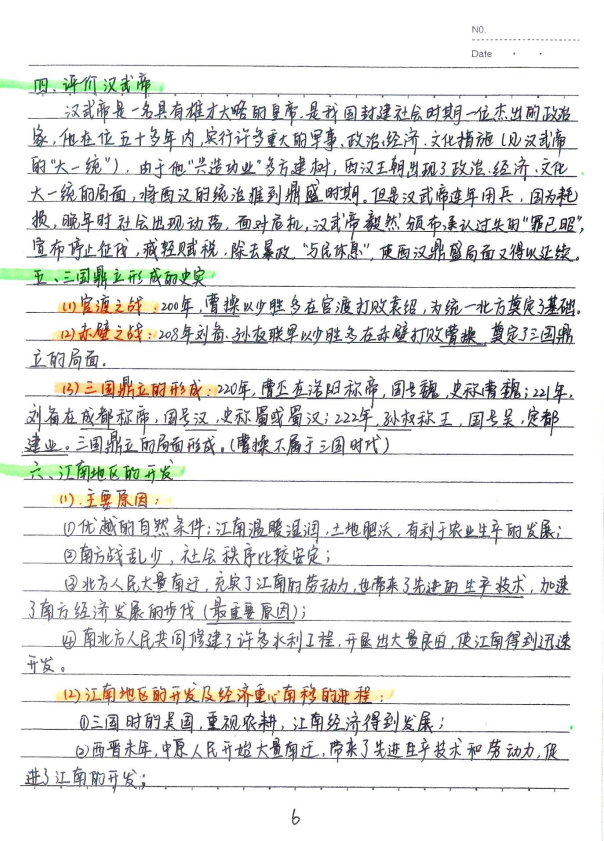 NO.
Date
四、评价汉武帝
汉武帝是一名具有雄才大略的皇帝,是我国封建社会时期一位杰出的政治
家,他在位五十多年内,实行许多重大的军事、政治、经济、文化措施(见汉武帝
的"大一统")。由于他"兴造功业"多方建树,西汉王朝出现了政治、经济、文化
大一统的局面,将西汉的统治推到鼎盛时期。但是汉武帝连年用兵,国力耗
损,晚年时社会出现动荡。面对危机,汉武帝毅然颁布承认过失的"罪己诏",
宣布停止征伐,减轻赋税,除去暴政,"与民休息",使西汉鼎盛局面又得以延续。
五、三国鼎立形成的史实
(1)官渡之战:200年,曹操以少胜多在官渡打败袁绍,为统一北方奠定了基础。
(2)赤壁之战:208年刘备、孙权联军以少胜多在赤壁打败曹操,奠定了三国鼎
立的局面.
(3)三国鼎立的形成:220年,曹丕在洛阳称帝,国号魏,史称曹魏;221年,
刘备在成都称帝,国号汉,史称蜀或蜀汉;222年,孙权称王,国号吴,定都
建业。三国鼎立的局面形成。(曹操不属于三国时代)
六、江南地区的开发
(1).主要原因:
①优越的自然条件:江南温暖湿润,土地肥沃,有利于农业生产的发展;
②南方战乱少,社会秩序比较安定;
③北方人民大量南迁,充实了江南的劳动力,也带来了先进的生产技术,加速
了南方经济发展的步伐(最重要原因);
④南北方人民共同修建了许多水利工程,开垦出大量良田,使江南得到迅速
开发。
(2)江南地区的开发及经济重心南移的进程:
①三国时的吴国,重视农耕,江南经济得到发展;
②西晋末年,中原人民开始大量南迁,带来了先进生产技术和劳动力,促
进了江南的开发;
6